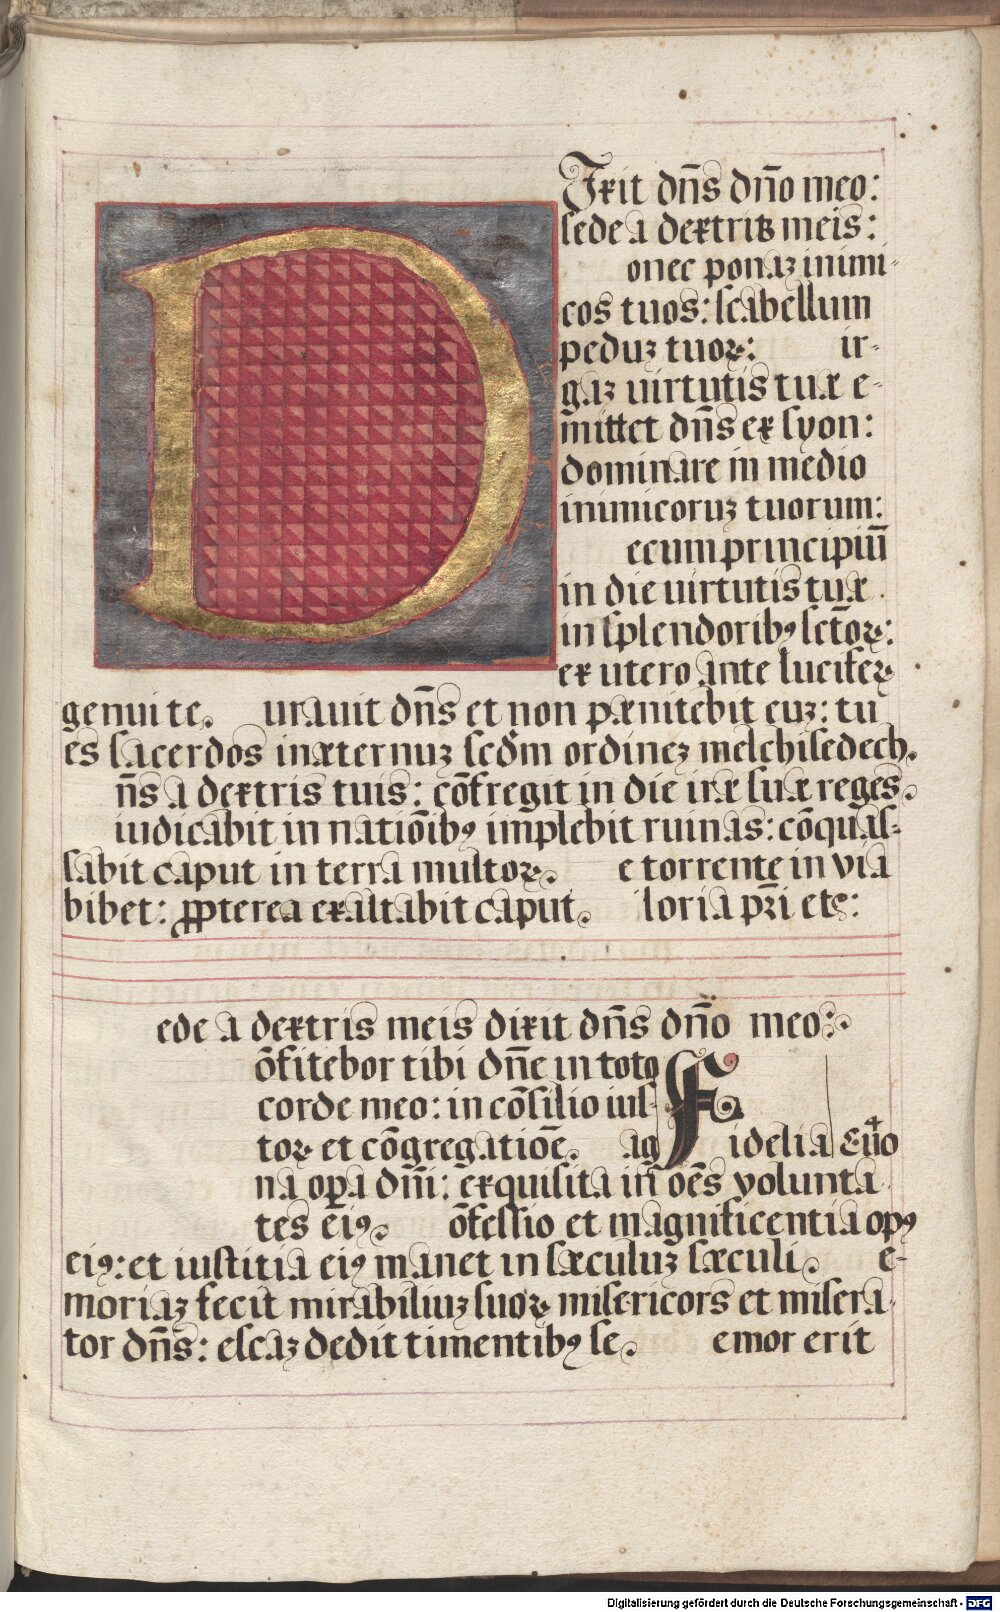 D
Ixit dn̄s dn̄o meo:
sede a dextris meis:
onec ponaꝫ inimi-
cos tuos: scabellum
peduꝫ tuoꝝ: ir-
gaꝫ uirtutis tuæ e-
mittet dn̄s ex syon:
dominare in medio
inimicoruꝫ tuorum:
ecum principiū
in die uirtutis tuæ.
in splendoribꝰ sctōꝝ:
ex utero ante lucifeꝝ
genui te. urauit dn̄s et non pænitebit euꝫ: tu
es sacerdos in æternuꝫ scdm̄ ordineꝫ melchisedech.
n̄s a dextris tuis: cōfregit in die iræ suæ reges.
iudicabit in natiōibꝰ implebit ruinas: cōquas-
sabit caput in terra multoꝝ. e torrente in via
bibet: ꝓpterea exaltabit caput. loria pr̄i etc:
ede a dextris meis dixit dn̄s dn̄o meo:
ōfitebor tibi dn̄e in toto
corde meo: in cōsilio ius-
toꝝ et cōgregatiōe. ag
F idelia Euo
na oꝑa dn̄i: exquisita in oēs volunta
tes eiꝰ. ōfessio et magnificentia opꝰ
eiꝰ: et iustitia eiꝰ manet in sæculuꝫ sæculi. e-
moriaꝫ fecit mirabiliuꝫ suoꝝ misericors et misera-
tor dn̄s: escaꝫ dedit timentibꝰ se. emor erit
Digitalisierung gefördert durch die Deutsche Forschungsgemeinschaft - DFG